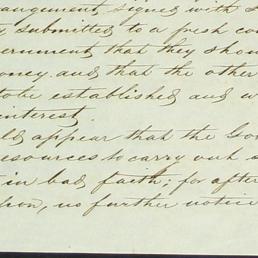 arrangement signed with
submitted to a fresh
ernment that they shou
oney. and that the other
to be established and w
interest.
ld appear that the Gov
resources to carry out s
t in bad faith; for after
no further notice